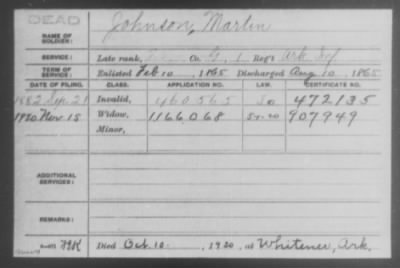 DEAD
NAME OF SOLDIER: Johnson, Martin
SERVICE: Late rank, Co. G, 1 Reg't Ark Inf
TERM OF SERVICE: Enlisted Feb 10, 1865 Discharged Aug 10, 1865
DATE OF FILING. CLASS. APPLICATION NO. LAW. CERTIFICATE NO.
1882 Sep 21 Invalid, 460.565 472135
1920 Nov 15 Widow, 1166.068 907949
Minor,
ADDITIONAL SERVICES:
REMARKS:
Died Oct. 10, 1920, at Whitener, Ark.